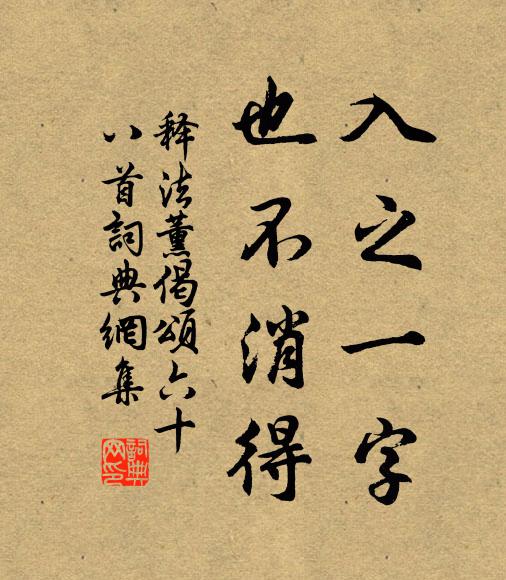 入之一字
也不消得
释法薰偈頌六十
八首詞典網集
詞典
网印